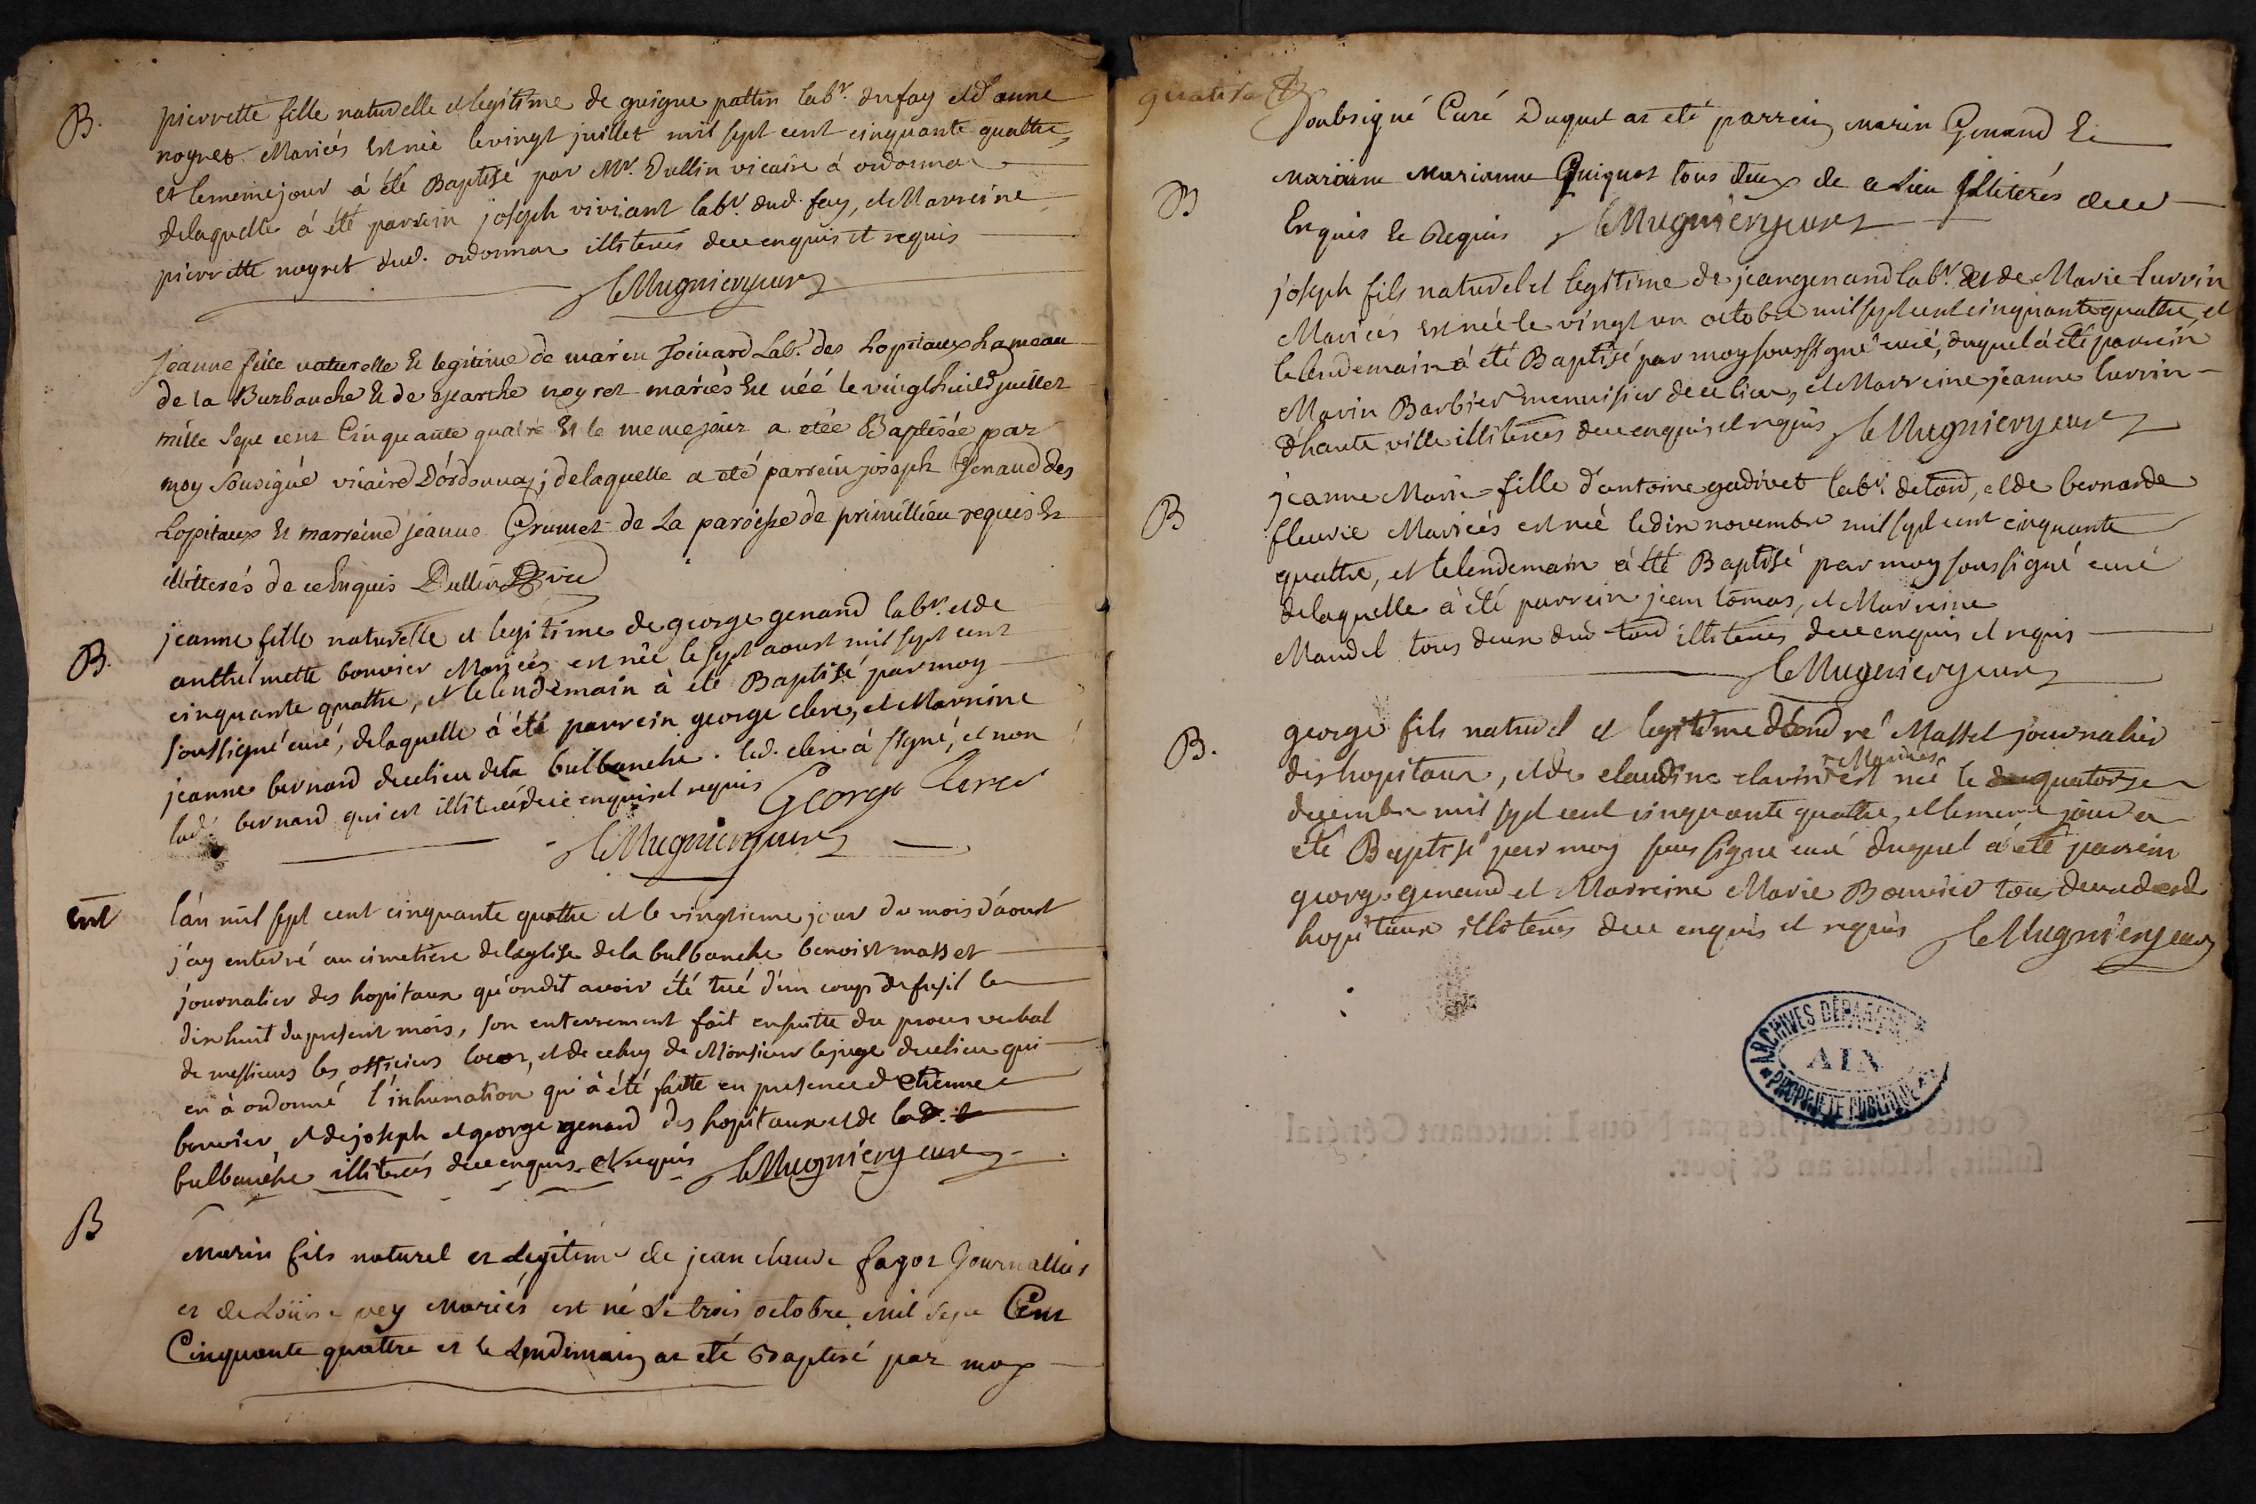 B. pierrette fille naturelle et legitime de guigue pattin labr. du fay et d'anne
noyret Mariés est née le vingt juillet mil sept cent cinquante quattre,
et le meme jour à été Baptisé par Mr. Dullin vicaire á ordonna
delaquelle á été parrein joseph viviant labr. dud. fay, et Marreine
pierrette noyret dud. ordonnas illiterés de ce enquis et requis
le Mugnier curé
Jeanne fille naturelle et legitime de marin Lab. des hopitaux hameau
de la Burbanche et de marthe noyret mariés est néé le vingt huit juillet
mille sept cent Cinquante quatre et le meme jour a étée Baptisée par
moy sousigné vicaire D'ordonnaz; de laquelle a été parrein joseph Genaud des
hopitaux et marreine jeanne Grumet de La paroisse de primillieu requis et
illitterés de ce Enquis Dullin vic
B. jeanne fille naturelle et legitime de george genand labr. et de
anthelmette bouvier Mariés est née le sept aoust mil sept cent
cinquante quattre, et le lendemain à été Baptisé par moy
soussigné curé, delaquelle à été parrein george clerc, et Marreine
jeanne bernard de ce lieu de la bulbanche. led. clerc à signé, et non
lad. bernard qui est illiterée de ce enquis et requis George Clerc
le Mugnier curé
ent l'an mil sept cent cinquante quattre et le vingtieme jour du mois d'aoust
j'ay enterré au cimetière de l'eglise de la bulbanche benoist masset
journalier des hopitaux qu'on dit avoir été tué d'un coup de fusil le
dix huit du present mois, son enterrement fait ensuitte du proces verbal
de messieurs les officiers locaux, et de celuy de Monsieur le juge de ce lieu qui
en à ordonné l'inhumation qui à été faitte en presence d'etienne
bouvier, et de joseph et george genand des hopitaux et de la
bulbanche illiterés de ce enquis et requis le Mugnier curé
B Marin fils naturel et Legitime de jean claude fagot Journallier
et de Loüise rey Mariés est né Le trois octobre mil sept Cent
Cinquante quattre et le Lendemain at eté Baptisé par moy
quatre
Soubsigné Curé Duquel at eté parrein marin Genand Et
maraine marianne Guiguet tous deux de ce Lieu Illiterés de ce
Enquis Et Requis le Mugnier curé
B joseph fils naturel et legitime de jean genand labr. et de Marie Lurrin
Mariés est née le vingt un octobre mil sept cent cinquante quattre, et
le lendemain à été Baptisé par moy soussigné curé, duquel á été parrein
Marin Barbier mennisier de ce lieu, et Marreine jeanne lurrin
d'hauteville illiterés de ce enquis et requis le Mugnier curé
B jeanne Marie fille d'antoine gadivet labr. de tard, et de bernarde
fleurie Mariés est née le dix novembre mil sept cent cinquante
quattre, et le lendemain á été Baptisé par moy soussigné curé
delaquelle á été parrein jean tomas, et Marreine
Mandel tous deux dud tard illiterés de ce enquis et requis
le Mugnier curé
B. george fils naturel et legitime d'andré Masset journalier
des hopitaux, et de claudine clavin Mariés est née le quatorze
decembre mil sept cent cinquante quattre, et le meme jour a
été Baptisé par moy soussigné curé duquel á été parrein
george genand et Marreine Marie Bouvier tous deux desd
hopitaux illiterés de ce enquis et requis le Mugnier curé
ARCHIVES DÉPARTEM
AIN
PROPRIÉTÉ PUBLIQUE